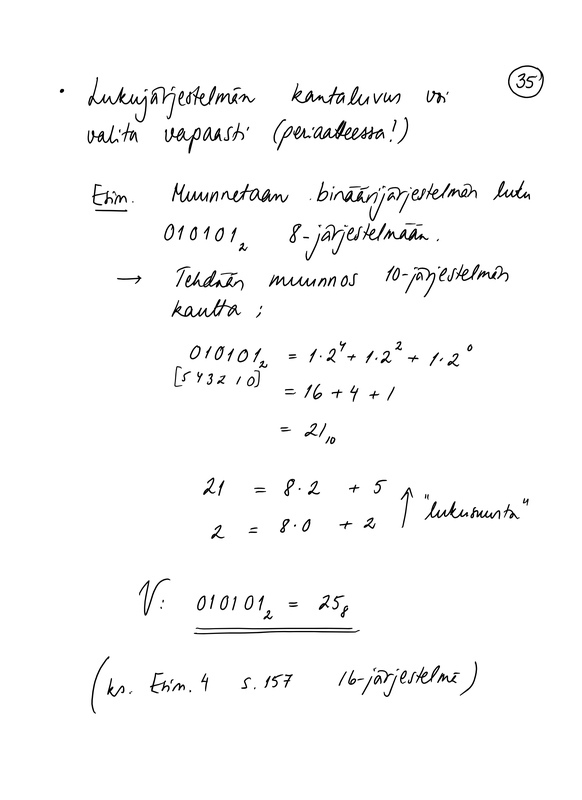 35
• Lukujärjestelmän kantaluvus voi
valita vapaasti (periaatteessa!)
Esim. Muunnetaan binäärijärjestelmän luku
010101₂ 8-järjestelmään.
→ Tehdään muunnos 10-järjestelmän
kautta;
010101₂ = 1·2⁴ + 1·2² + 1·2⁰
[5 4 3 2 1 0]
= 16 + 4 + 1
= 21₁₀
21 = 8·2 + 5
2 = 8·0 + 2
↑ "lukusuunta"
V: 010101₂ = 25₈
(ks. Esim. 4 s. 157 16-järjestelmä)